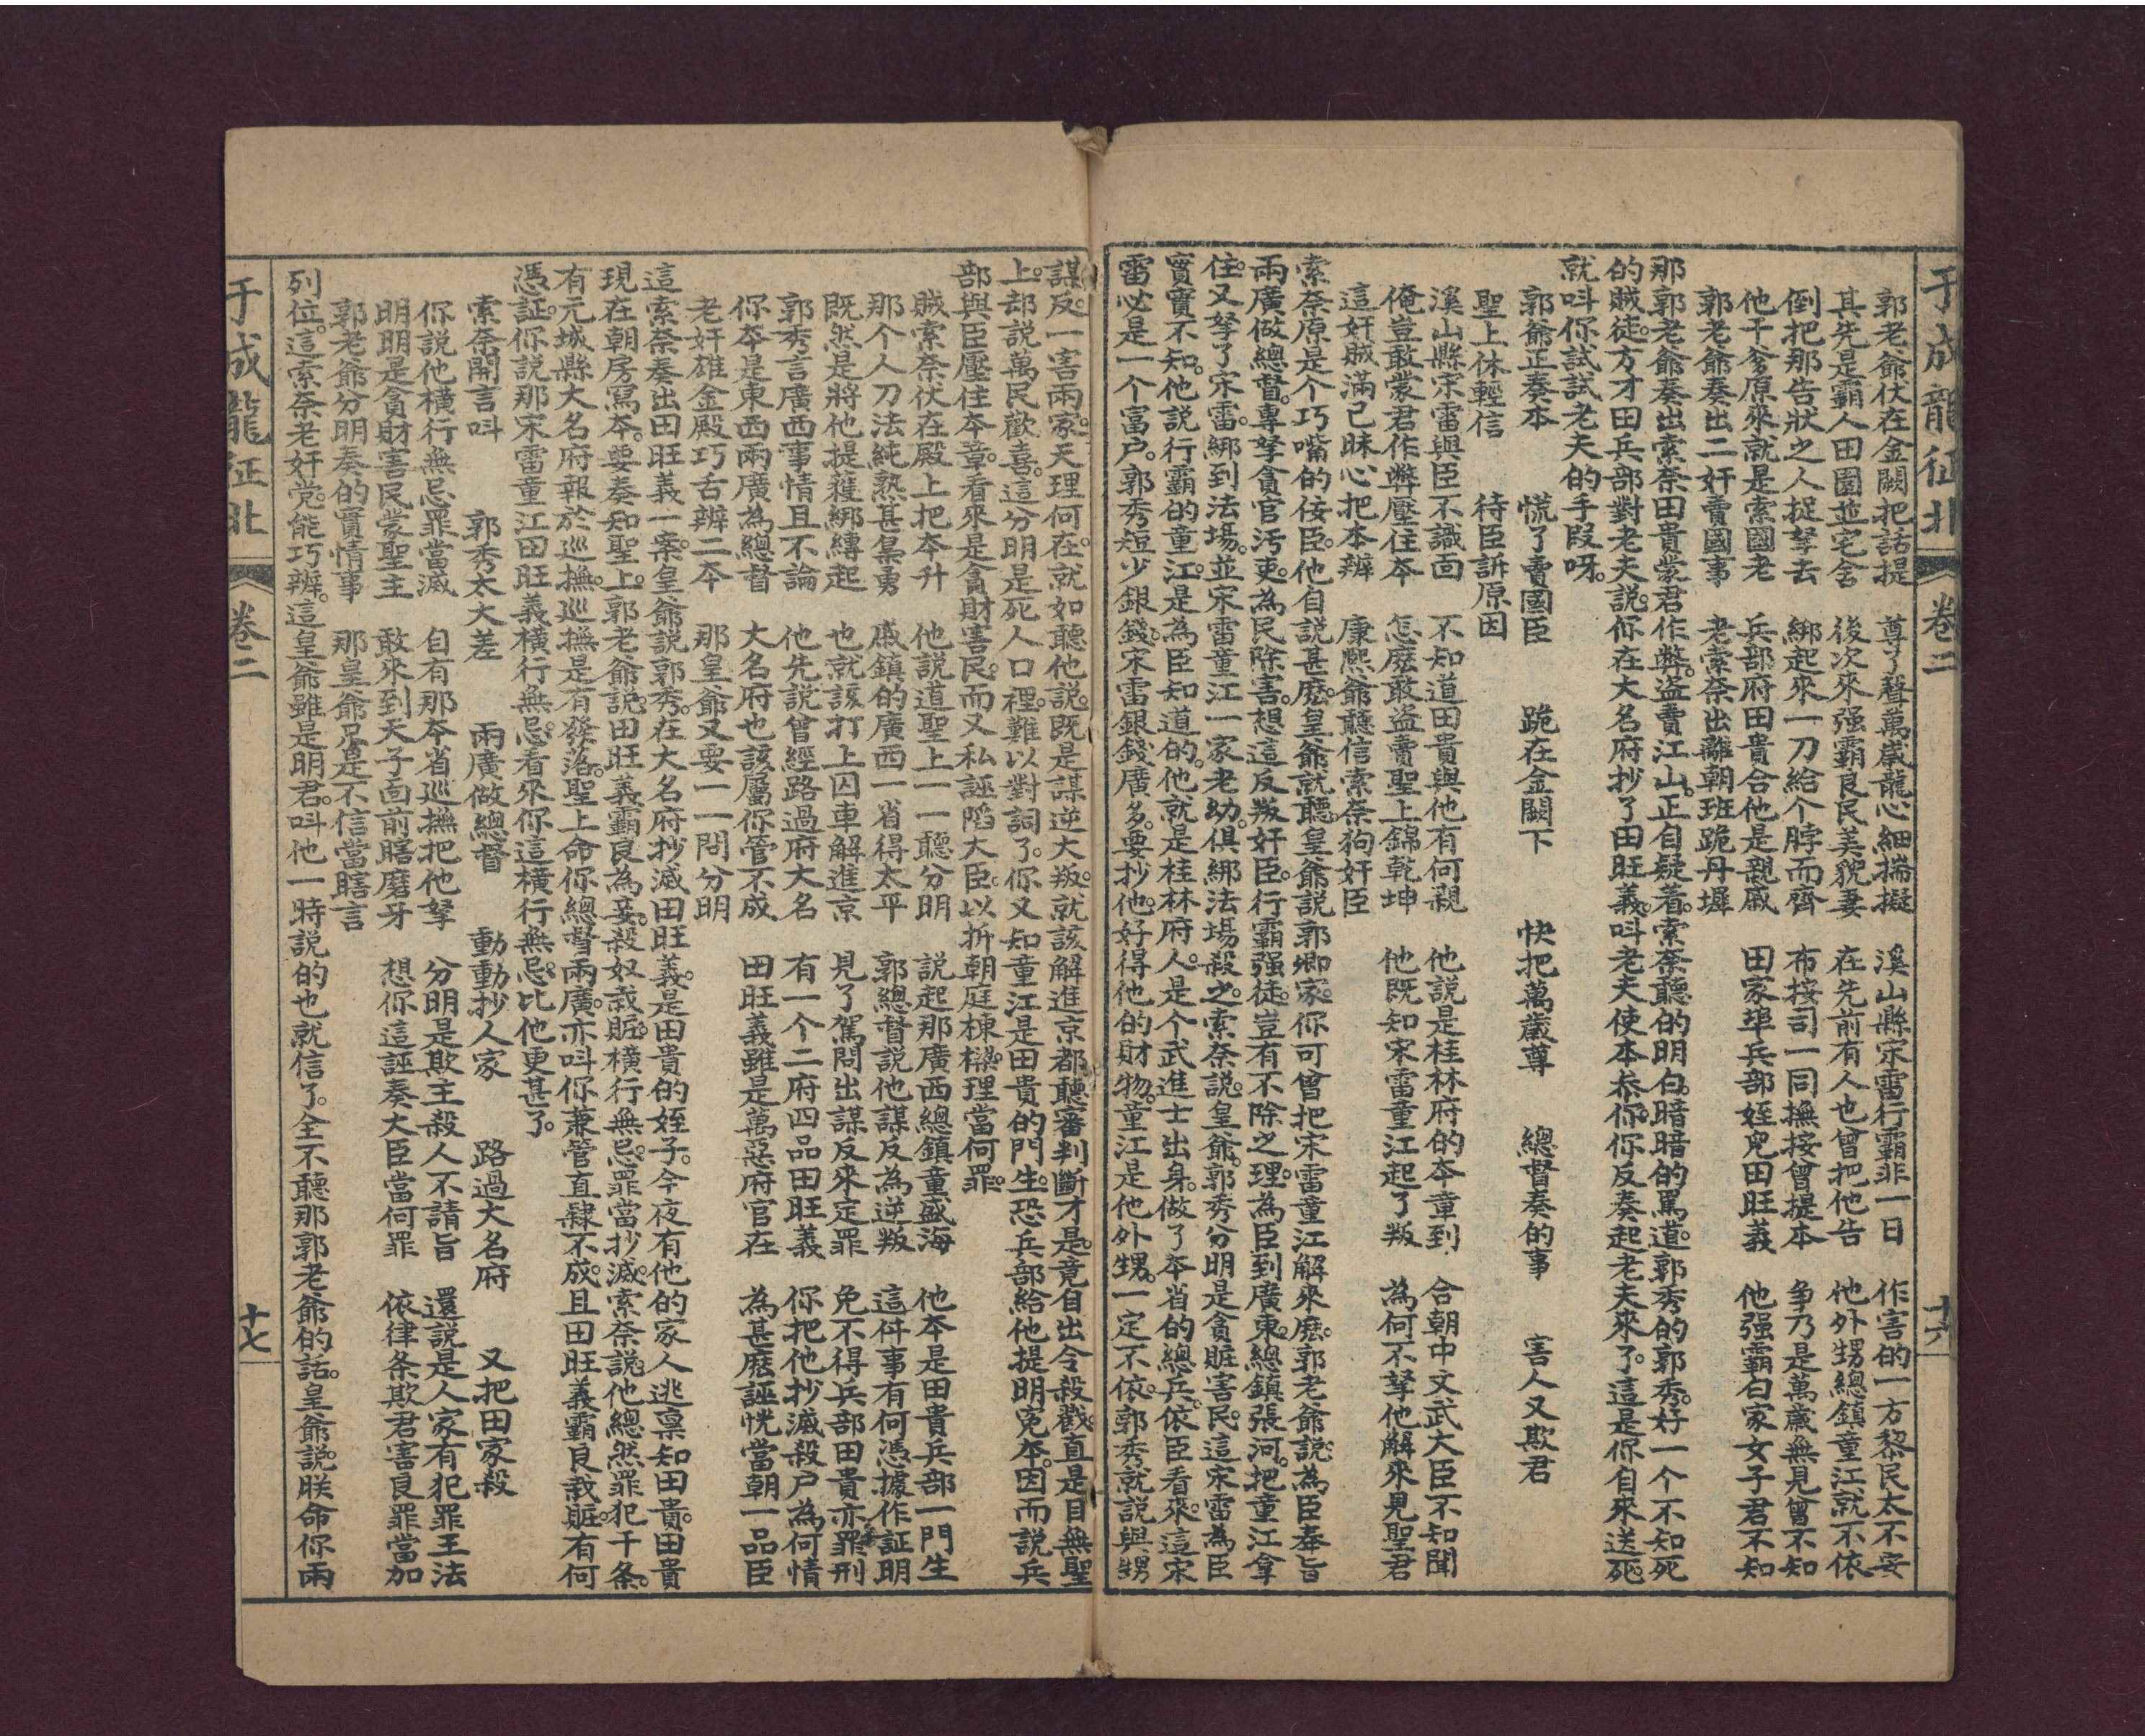 于成龍征北 卷二 十六
郭老爺伏在金闕把話提 尊了聲萬歲龍心細揣擬 溪山縣宋雷行霸非一日 作害的一方黎民太不安
其先是霸人田園並宅舍 後次來强霸良民美貌妻 在先前有人也曾把他告 他外甥總鎮童江就不依
倒把那告狀之人捉拏去 綁起來一刀給个脖而齊 布按司一同撫按曾提本 爭乃是萬歲無見曾不知
他干爹原來就是索國老 兵部府田貴合他是親戚 田家埠兵部姪兒田旺義 他强霸白家女子君不知
郭老爺奏出二奸賣國事 老索奈出離朝班跪丹墀
那郭老爺奏出索奈田貴蒙君作弊。盜賣江山。正自疑着。索奈聽的明白。暗暗的罵道。郭秀的郭秀。好一个不知死
的賊徒。方才田兵部對老夫説。你在大名府抄了田旺義。呌老夫使本叅你。你反奏起老夫來了。這是你自來送死。
就呌你試試老夫的手叚呀。
郭爺正奏本 慌了賣國臣 跪在金闕下 快把萬歲尊 總督奏的事 害人又欺君
聖上休輕信 待臣訴原因
溪山縣宋雷與臣不識面 不知道田貴與他有何親 他説是桂林府的夲童到 合朝中文武大臣不知聞
俺豈敢蒙君作弊壓住夲 怎麽敢盗賣聖上錦乾坤 他既知宋雷童江起了叛 為何不拏他解來見聖君
這奸賊滿己昧心把本辨 康熙爺聽信索奈狗奸臣
索奈原是个巧嘴的侫臣。他自説甚麽。皇爺就聽。皇爺説郭卿家。你可曾把宋雷童江解來麽。郭老爺説。為臣奉旨
兩廣做總督。專拏貪官汚吏。為民除害。想這反叛奸臣。行霸强徒。豈有不除之理。為臣到廣東。總鎮張河。把童江拿
住。又拏了宋雷。綁到法場。並宋雷童江一家老幼。俱綁法場殺之。索奈説。皇爺。郭秀分明是貪賍害民。這宋雷為臣
實實不知。他説行霸的童江。是為臣知道的。他就是桂林府人。是个武進士出身。做了夲省的總兵。依臣看來。這宋
雷必是一个富户。郭秀短少銀錢。宋雷銀錢廣多。要抄他。好得他的財物。童江是他外甥。一定不依。郭秀就説與甥
謀反。一害兩家。天理何在。就如聽他説。既是謀逆大叛。就該解進京都。聽審判斷才是。竟自出令殺戮。直是目無聖
上。却説萬民歡喜。這分明是死人口裡。難以對詞了。你又知童江是田貴的門生。恐兵部給他提明寃夲。因而説兵
部與臣壓住夲章。看來是貪財害民。而又私誣䧟大臣。以折朝庭棟樑。理當何罪。
賊索奈伏在殿上把夲升 他説道聖上一一聽分明 説起那廣西總鎮童盛海 他夲是田貴兵部一門生
那个人刀法純熟甚梟勇 鹹鎮的廣西一省得太平 郭總督説他謀反為逆叛 這件事有何憑據作証明
既然是將他提獲綁縳起 也就該打上囚車解進京 見了駕問出謀反來定罪 免不得兵部田貴亦罪刑
郭秀言廣西事情且不論 他先説曾經路過府大名 有一个二府四品田旺義 你把他抄滅殺户為何情
你夲是東西兩廣為總督 大名府也該屬你管不成 田旺義雖是萬惡府官在 為甚麽誣恍當朝一品臣
老奸雄金殿巧舌辨二夲 那皇爺又要一一問分明
這索奈奏出田旺義一案。皇爺説郭秀。在大名府抄滅田旺義。是田貴的姪子。今夜有他的家人逃禀知田貴。田貴
現在朝房寫夲。要奏知聖上。郭老爺説。田旺義霸良為妾。殺奴栽賍。橫行無忌。罪當抄滅。索奈説。他總然罪犯千条。
有元城縣大名府報於巡撫。巡撫是有發落。聖上命你總督兩廣。亦呌你兼管直隸不成。且田旺義霸良栽賍。有何
憑証。你説那宋雷童江田旺義橫行無忌。看來你這橫行無忌。比他更甚了。
索奈開言呌 郭秀太大差 兩廣做總督 動動抄人家 路過大名府 又把田家殺
你説他橫行無忌罪當滅 自有那夲省巡撫把他拏 分明是欺主殺人不請旨 還説是人家有犯罪王法
明明是貪財害民蒙聖主 敢來到天子面前瞎磨牙 想你這誣奏大臣當何罪 依律条欺君害良罪當加
郭老爺分明奏的實情事 那皇爺只是不信當瞎言
列位。這索奈老奸党。能巧辨。這皇爺雖是明君。呌他一時説的也就信了。全不聽那郭老爺的話。皇爺説。朕命你兩
于成龍征北 卷二 十七